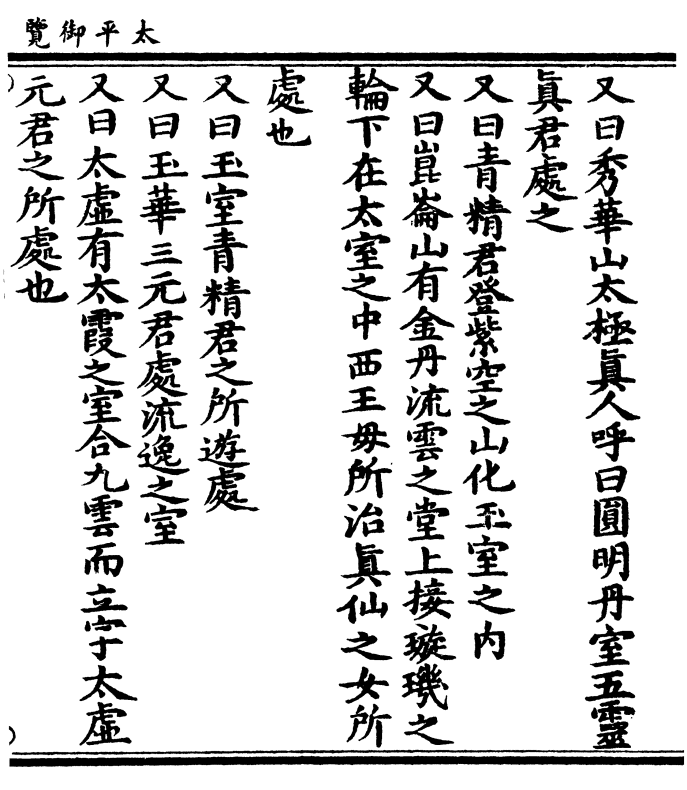 太平御覽
又曰秀華山太極眞人呼曰圓明丹室五靈
眞君處之
又曰青精君登紫空之山化玉室之内
又曰崑崙山有金丹流雲之堂上接璇璣之
輪下在太室之中西王毋所治眞仙之女所
處也
又曰玉室青精君之所遊處
又曰玉華三元君處流逸之室
又曰太虛有太霞之室合九雲而立字太虛
元君之所處也